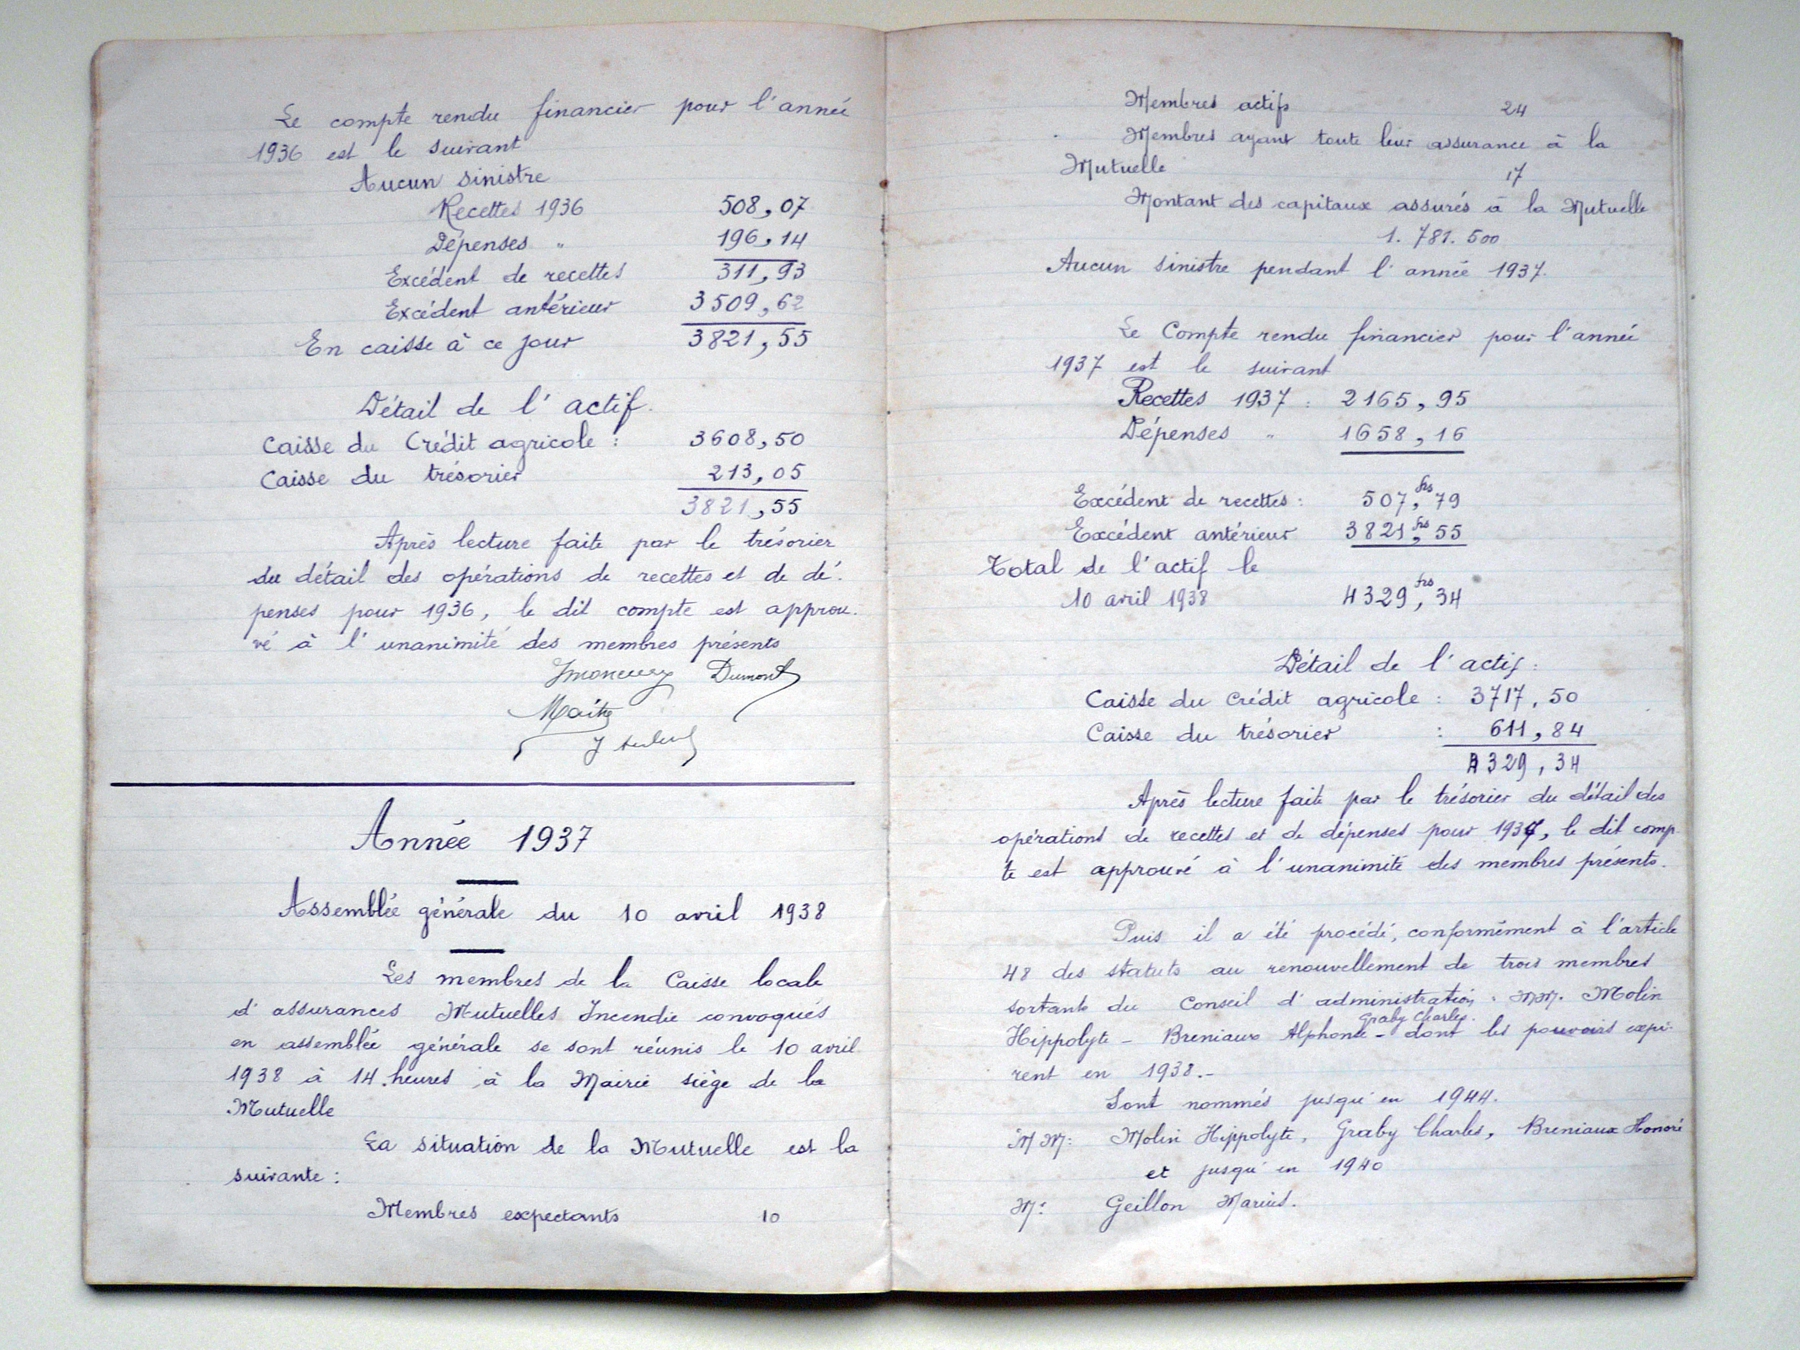 Le compte rendu financier pour l'année
1936 est le suivant
Aucun sinistre
Recettes 1936 508,07
Dépenses " 196,14
Excédent de recettes 311,93
Excédent antérieur 3509,62
En caisse à ce jour 3821,55
Détail de l'actif.
Caisse du Crédit agricole : 3608,50
Caisse du trésorier 213,05
3821,55
Après lecture faite par le trésorier
du détail des opérations de recettes et de dé-
penses pour 1936, le dit compte est approu-
vé à l'unanimité des membres présents
Dumont
Année 1937
Assemblée générale du 10 avril 1938
Les membres de la Caisse locale
d'assurances Mutuelles Incendie convoqués
en assemblée générale se sont réunis le 10 avril
1938 à 14 heures à la Mairie siège de la
Mutuelle
La situation de la Mutuelle est la
suivante :
Membres expectants 10
Membres actifs 24
Membres ayant toute leur assurance à la
Mutuelle 17
Montant des capitaux assurés à la Mutuelle
1.781.500
Aucun sinistre pendant l'année 1937.
Le Compte rendu financier pour l'année
1937 est le suivant
Recettes 1937 : 2165,95
Dépenses " 1658,16
Excédent de recettes : 507,frs79
Excédent antérieur 3821,frs55
Total de l'actif le
10 avril 1938 4329,frs34
Détail de l'actif :
Caisse du crédit agricole : 3717,50
Caisse du trésorier : 611,84
4329,34
Après lecture faite par le trésorier du détail des
opérations de recettes et de dépenses pour 1937, le dit comp-
te est approuvé à l'unanimité des membres présents.
Puis il a été procédé, conformément à l'article
48 des statuts au renouvellement de trois membres
sortants du Conseil d'administration. MM. Molin
Graby Charles.
Hippolyte - Breniaux Alphonse - dont les pouvoirs expi-
rent en 1938.-
Sont nommés jusqu'en 1944.
MM: Molin Hippolyte, Graby Charles, Breniaux Honoré
et jusqu'en 1940
M: Geillon Marius.